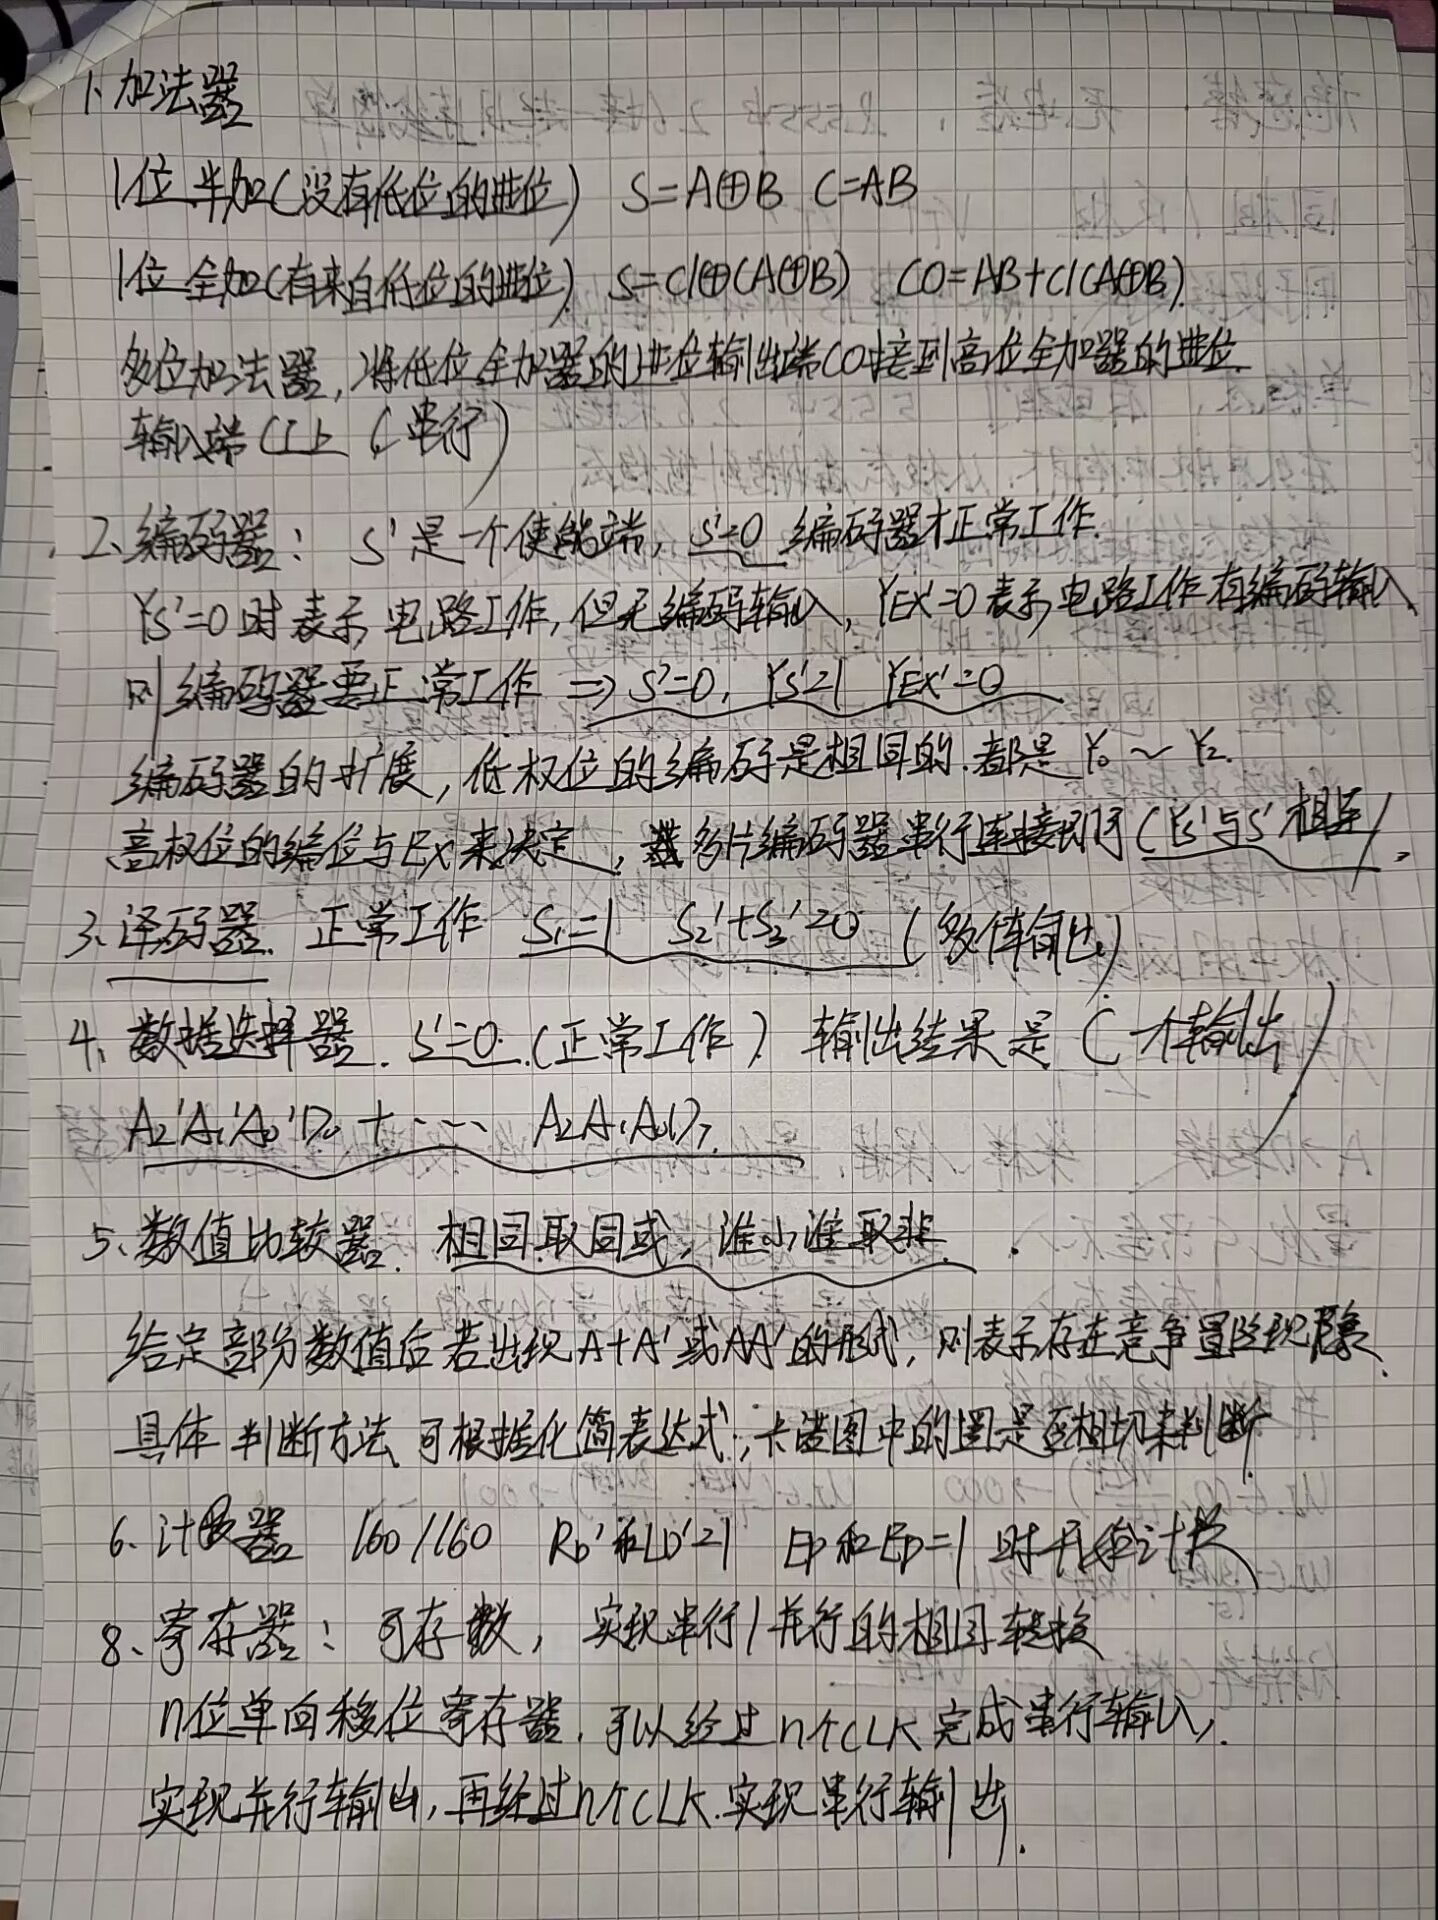 1、加法器
1位半加(没有低位的进位) S=A⊕B C=AB
1位全加(有来自低位的进位) S=CI⊕(A⊕B) CO=AB+CI(A⊕B).
多位加法器,将低位全加器的进位输出端CO接到高位全加器的进位
输入端CI上 (串行)
2、编码器: S'是一个使能端, S'=0 编码器才正常工作.
Ys'=0时表示电路工作,但无编码输入, YEX'=0表示电路工作有编码输入,
则编码器要正常工作 ⇒ S'=0, Ys'=1 YEX'=0
编码器的扩展,低权位的编码是相同的.都是Y0~Y2.
高权位的编位与Ex来决定, 多片编码器串行连接即可(Ys'与S'相连),
3、译码器. 正常工作 S1=1 S2'+S3'=0 (多个输出)
4、数据选择器. S'=0.(正常工作) 输出结果是 (一个输出)
A2'A1'A0'D0+···· A2A1A0D7.
5、数值比较器. 相同取同或,谁小谁取非.
给定部分数值后若出现A+A'或AA'的形式,则表示存在竞争冒险现象.
具体判断方法可根据化简表达式,卡诺图中的圈是否相切来判断.
6、计数器 160/160 RD'和LD'=1 EP和EP=1时开始计数
8、寄存器: 可存数, 实现串行/并行的相同转换
n位单向移位寄存器,可以经过n个CLK完成串行输入,
实现并行输出,再经过n个CLK.实现串行输出.